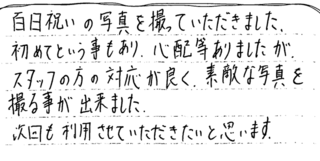 百日祝いの写真を撮っていただきました。
初めてという事もあり、心配等ありましたが、
スタッフの方の対応が良く、素敵な写真を
撮る事が出来ました。
次回も利用させていただきたいと思います。